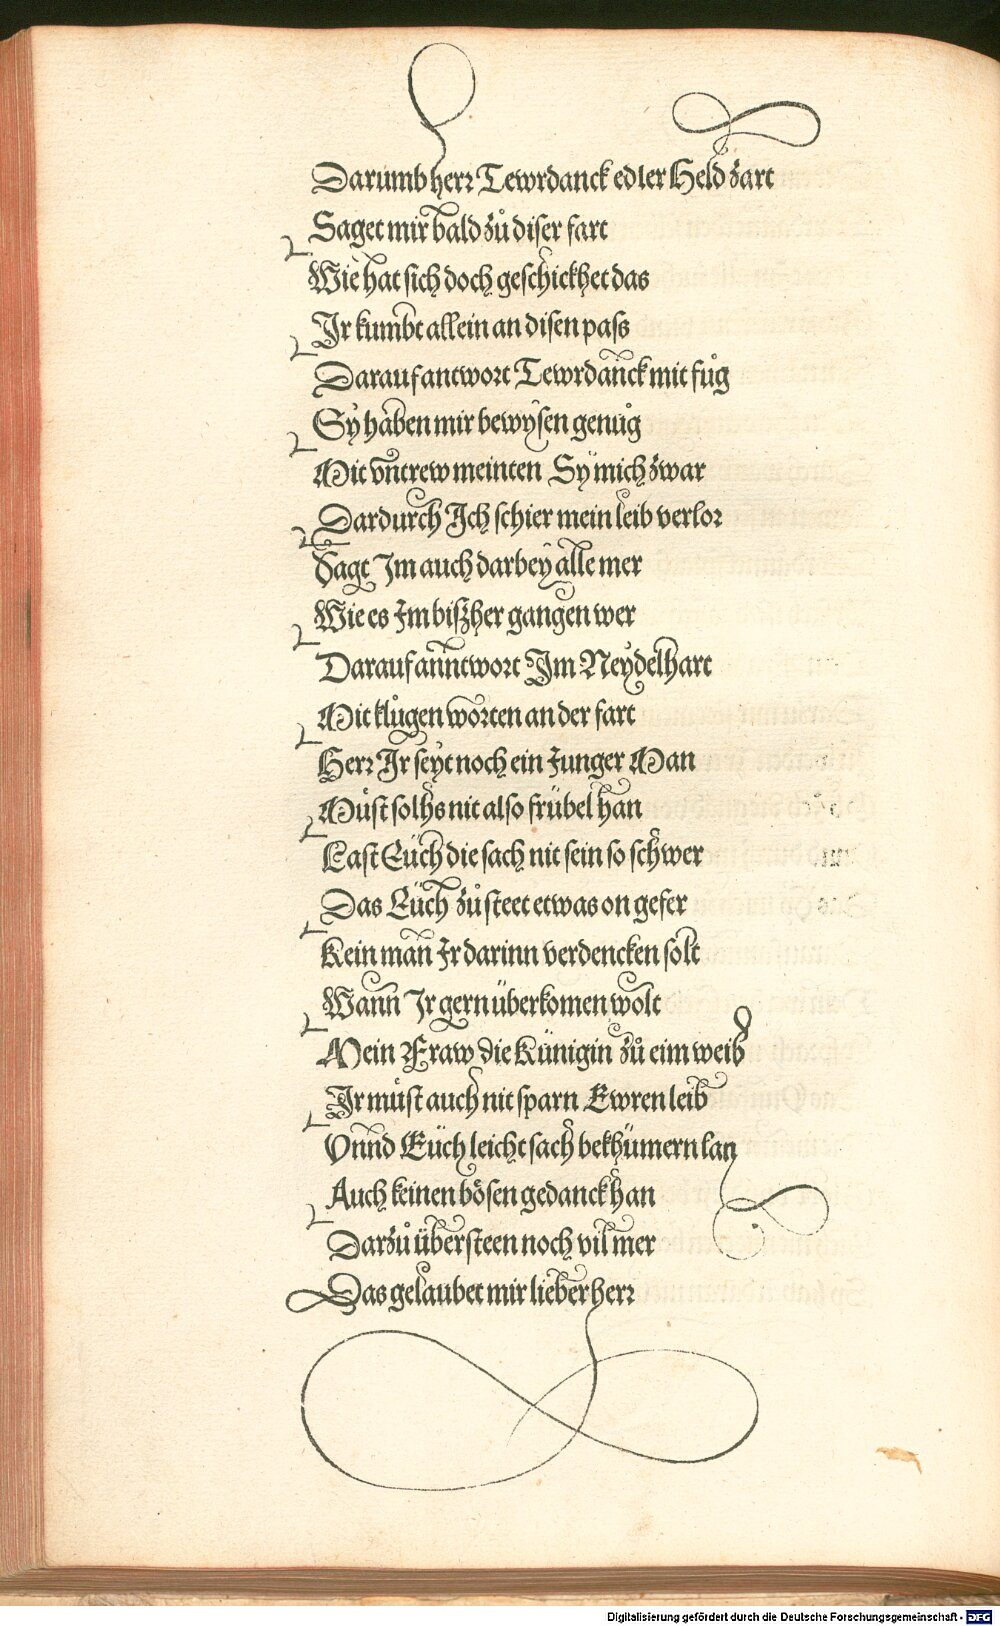 Darumb herr Tewrdanck edler Held zart
Saget mir bald zů diser fart
Wie hat sich doch geschickhet das
Ir kumbt allein an disen pass
Darauf antwort Tewrdannck mit fůg
Sy haben mir bewysen genůg
Mit vntrew meinten Sy mich zwar
Dardurch Ich schier mein leib verlor
Sagt Im auch darbey alle mer
Wie es Im bißher gangen wer
Darauf anntwort Im Neydelhart
Mit klůgen worten an der fart
Herr Ir seyt noch ein Junger Man
Můst solhs nit also frübel han
Last Eüch die sach nit sein so schwer
Das Eüch zů steet etwas on gefer
Kein man Ir darinn verdencken solt
Wann Ir gern überkomen wolt
Mein Fraw die Künigin zů eim weib
Ir müst auch nit sparn Ewren leib
Vnnd Eüch leicht sach bekhümern lan
Auch keinen bösen gedanck han
Darzů übersteen noch vil mer
Das gelaubet mir lieber herr
Digitalisierung gefördert durch die Deutsche Forschungsgemeinschaft - DFG